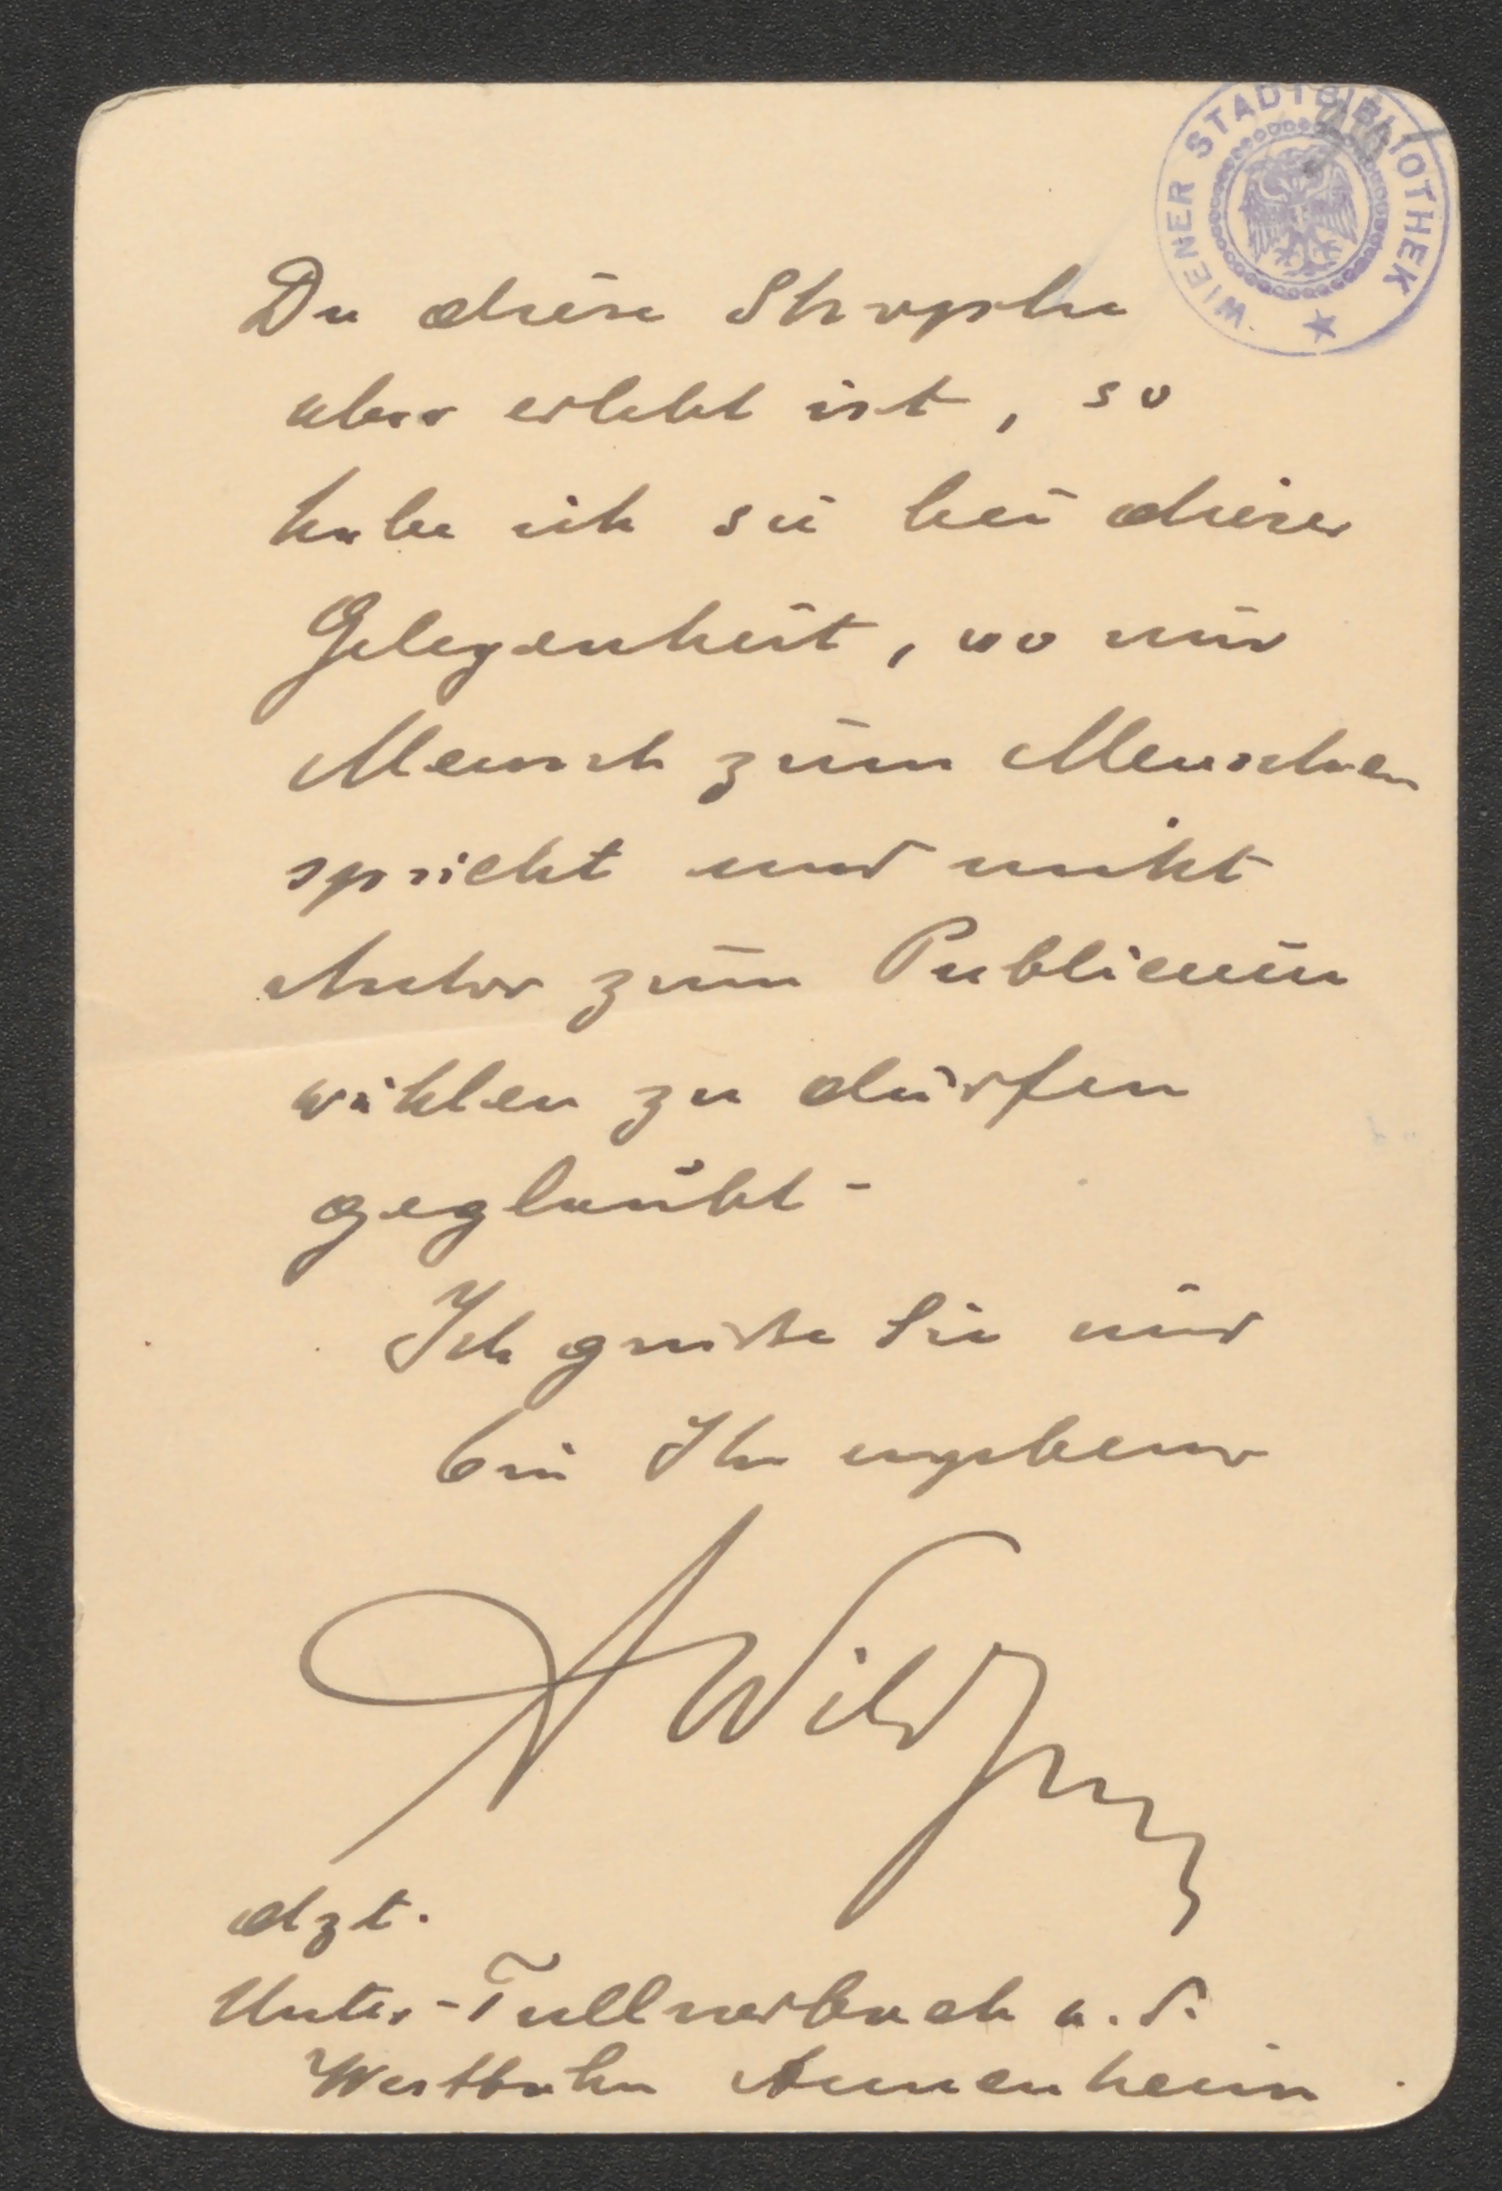 WIENER STADTBIBLIOTHEK
Da diese Strophe
aber erlebt ist, so
habe ich sie bei dieser
Gelegenheit, wo nur
Mensch zum Menschen
spricht und nicht
Autor zum Publicum
wählen zu dürfen
geglaubt -
Ich grüße Sie und
bin Ihr ergebener
AWildgans
dzt.
Unter-Tullnerbach a. d.
Westbahn Annenheim